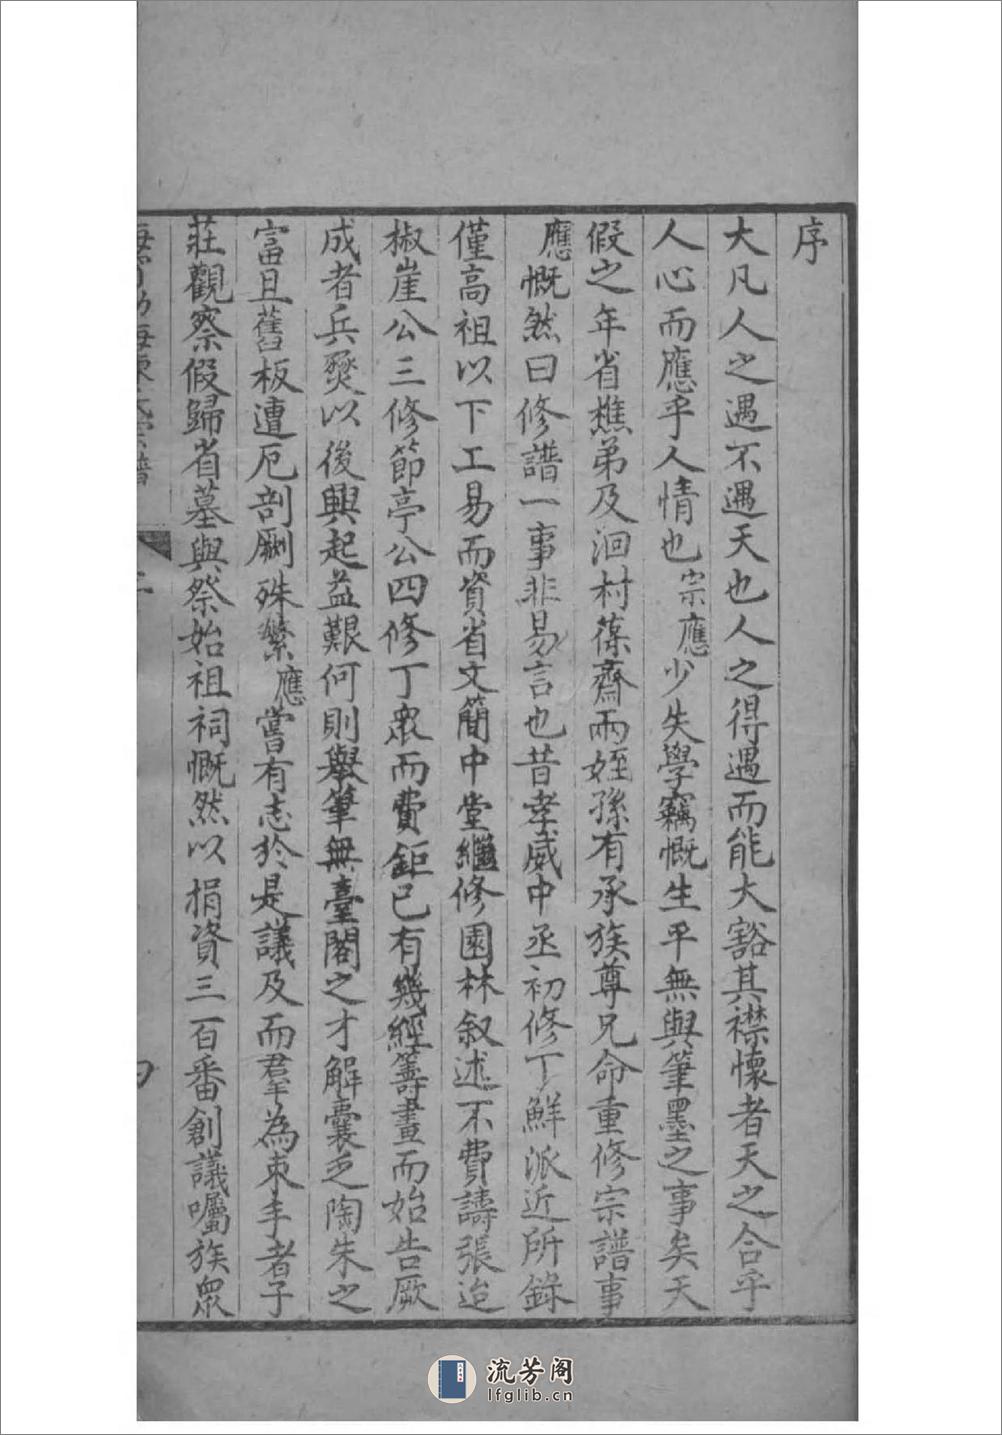 序
大凡人之遇不遇天也人之得遇而能大豁其襟懷者天之合乎
人心而應乎人情也宗應少失學竊慨生平無與筆墨之事矣天
假之年省樵弟及洄村葆齋兩姪孫有承族尊兄命重修宗譜事
應慨然曰修譜一事非易言也昔孝威中丞初修丁鮮派近所錄
僅高祖以下工易而資省文簡中堂繼修園林叙述不費譸張迨
椒崖公三修節亭公四修丁衆而費鉅已有幾經籌畫而始告厥
成者兵燹以後興起益艱何則舉筆無臺閣之才解囊乏陶朱之
富且舊板遭厄剖劂殊繁應嘗有志於是議及而羣為束手者子
莊觀察假歸省墓與祭始祖祠慨然以捐資三百番創議囑族眾
流芳阁
lfglib.cn